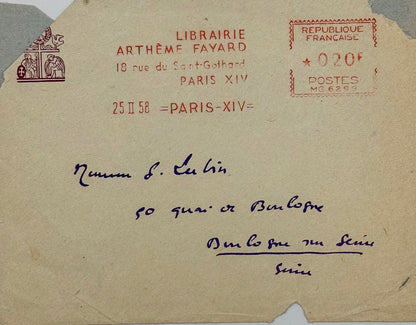 LIBRAIRIE
ARTHÈME FAYARD
18 rue du Saint-Gothard
PARIS XIV
25 II 58 =PARIS-XIV=
REPUBLIQUE
FRANÇAISE
★ 020F
POSTES
MG 6299
G. Lubin
90 quai de Boulogne
Boulogne sur Seine
Seine